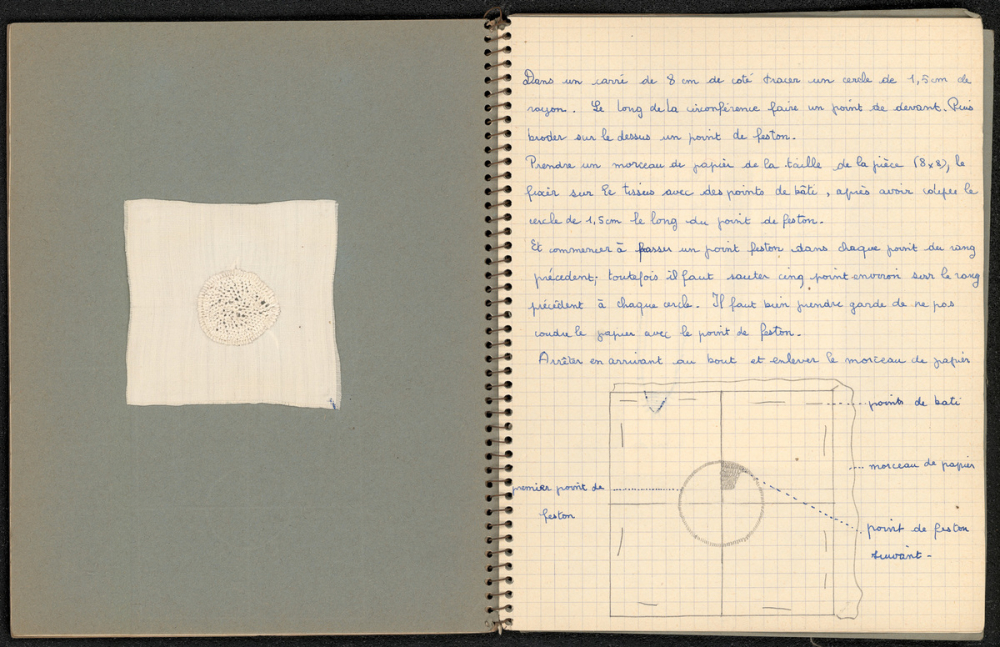 Dans un carré de 8 cm de coté tracer un cercle de 1,5 cm de
rayon. Le long de la circonférence faire un point de devant. Puis
broder sur le dessus un point de feston.
Prendre un morceau de papier de la taille de la pièce (8x8), le
fixer sur le tissus avec des points de bâti, après avoir le
cercle de 1,5cm le long du point de feston.
Et commencer à passer un point feston dans chaque point du rang
précedent; toutefois il faut sauter cinq point environ sur le rang
précédent à chaque cercle. Il faut bien prendre garde de ne pas
coudre le papier avec le point de feston.
Arrêter en arrivant au bout et enlever le morceau de papier
points de bati
morceau de papier
premier point de
feston
point de feston
suivant -